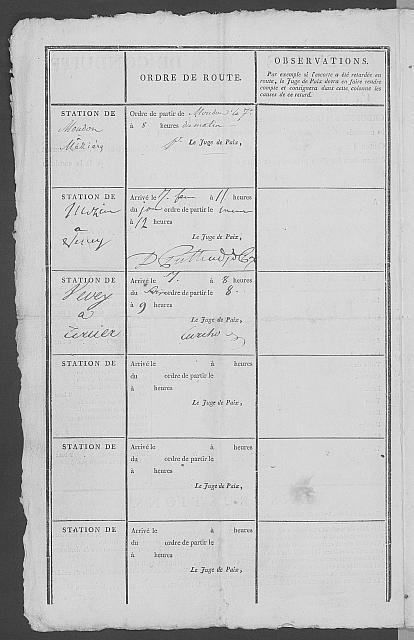 ORDRE DE ROUTE.
OBSERVATIONS.
Par exemple si l'escorte a été retardée en
route, le Juge de Paix devra en faire rendre
compte et consignera dans cette colonne les
causes de ce retard.
STATION DE
Moudon
à
Mézières
Ordre de partir de Moudon le 7.
à 8 heures du matin
Le Juge de Paix,
STATION DE
à
Vevey
Arrivé le 7. à 11 heures
du ordre de partir le
à 12 heures
Le Juge de Paix,
STATION DE
Vevey
à
Arrivé le 7. à 8 heures
du ordre de partir le 8.
à 9 heures
Le Juge de Paix,
STATION DE
Arrivé le à heures
du ordre de partir le
à heures
Le Juge de Paix,
STATION DE
Arrivé le à heures
du ordre de partir le
à heures
Le Juge de Paix,
STATION DE
Arrivé le à heures
du ordre de partir le
à heures
Le Juge de Paix,